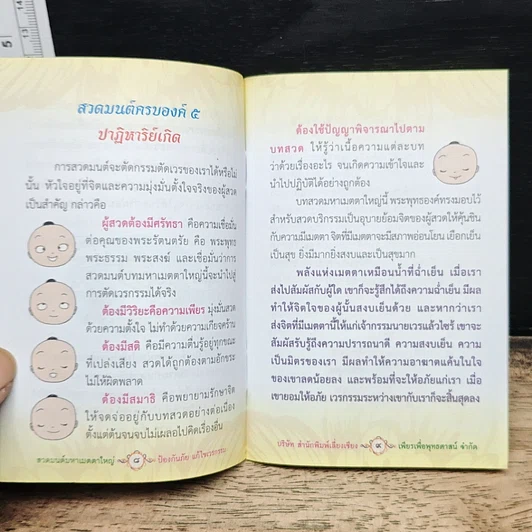 สวดมนต์ครบองค์ ๕
ปาฏิหาริย์เกิด
การสวดมนต์จะตัดกรรมตัดเวรของเราได้หรือไม่
นั้น หัวใจอยู่ที่จิตและความมุ่งมั่นตั้งใจจริงของผู้สวด
เป็นสำคัญ กล่าวคือ
ผู้สวดต้องมีศรัทธา คือความเชื่อมั่น
ต่อคุณของพระรัตนตรัย คือ พระพุทธ
พระธรรม พระสงฆ์ และเชื่อมั่นว่าการ
สวดมนต์บทมหาเมตตาใหญ่นี้จะนำไปสู่
การตัดเวรกรรมได้จริง
ต้องมีวิริยะคือความเพียร มุ่งมั่นสวด
ด้วยความตั้งใจ ไม่ทำด้วยความเกียจคร้าน
ต้องมีสติ คือมีความตื่นรู้อยู่ทุกขณะ
ที่เปล่งเสียง สวดได้ถูกต้องตามอักขระ
ไม่ให้ผิดพลาด
ต้องมีสมาธิ คือพยายามรักษาจิต
ให้จดจ่ออยู่กับบทสวดอย่างต่อเนื่อง
ตั้งแต่ต้นจนจบไม่เผลอไปคิดเรื่องอื่น
สวดมนต์มหาเมตตาใหญ่ ๘ ป้องกันภัย แก้ไขเวรกรรม
ต้องใช้ปัญญาพิจารณาไปตาม
บทสวด ให้รู้ว่าเนื้อความแต่ละบท
ว่าด้วยเรื่องอะไร จนเกิดความเข้าใจและ
นำไปปฏิบัติได้อย่างถูกต้อง
บทสวดมหาเมตตาใหญ่นี้ พระพุทธองค์ทรงมอบไว้
สำหรับสวดบริกรรมเป็นอุบายย้อมจิตของผู้สวดให้คุ้นชิน
กับความมีเมตตา จิตที่มีเมตตาจะมีสภาพอ่อนโยน เยือกเย็น
เป็นสุข ยิ่งมีมากยิ่งสงบและเป็นสุขมาก
พลังแห่งเมตตาเหมือนน้ำที่ฉ่ำเย็น เมื่อเรา
ส่งไปสัมผัสกับผู้ใด เขาก็จะรู้สึกได้ถึงความฉ่ำเย็น มีผล
ทำให้จิตใจของผู้นั้นสงบเย็นด้วย และหากว่าเรา
ส่งจิตที่มีเมตตานี้ให้แก่เจ้ากรรมนายเวรแล้วไซร้ เขาจะ
สัมผัสรับรู้ถึงความปรารถนาดี ความสงบเย็น ความ
เป็นมิตรของเรา มีผลทำให้ความอาฆาตแค้นในใจ
ของเขาลดน้อยลง และพร้อมที่จะให้อภัยแก่เรา เมื่อ
เขายอมให้อภัย เวรกรรมระหว่างเขากับเราก็จะสิ้นสุดลง
บริษัท สำนักพิมพ์เลี่ยงเชียง ๙ เพียรเพื่อพุทธศาสน์ จำกัด
5